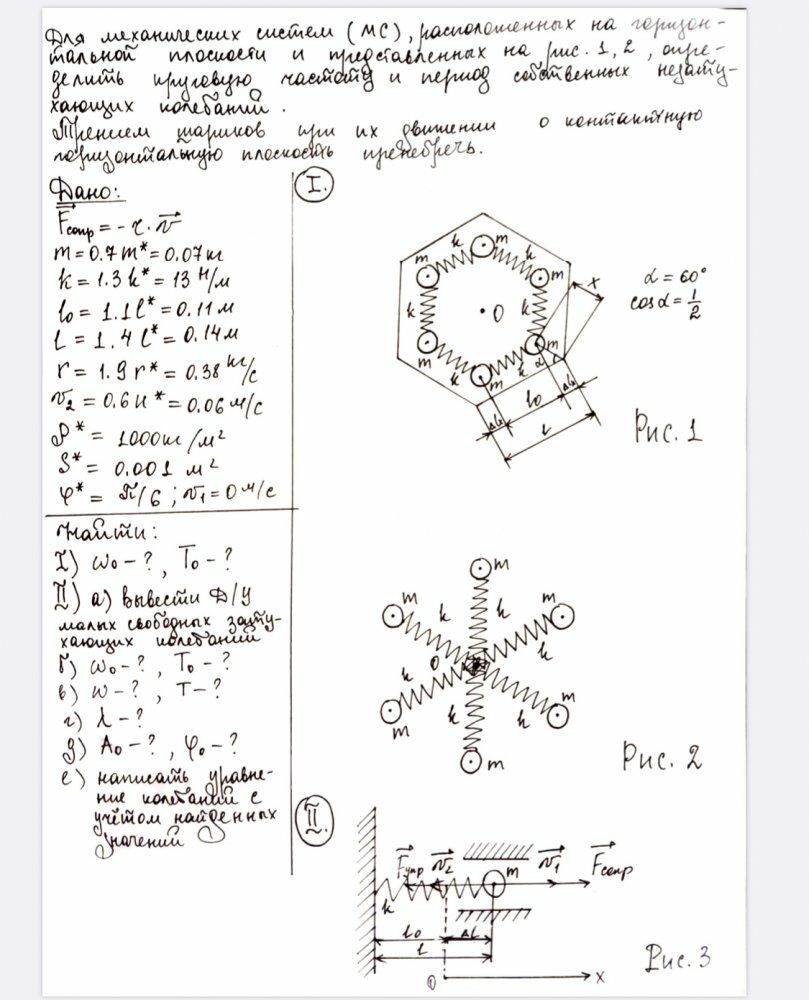 Для механических систем (МС), расположенных на горизон-
тальной плоскости и представленных на рис. 1, 2, опре-
делить круговую частоту и период собственных незату-
хающих колебаний.
Трением шариков при их движении о контактную
горизонтальную плоскость пренебречь.
Дано:
Fсопр = - r · v
m = 0.7 m* = 0.07 кг
k = 1.3 k* = 13 Н/м
l₀ = 1.1 l* = 0.11 м
l = 1.4 l* = 0.14 м
r = 1.9 r* = 0.38 кг/с
v₂ = 0.6 u* = 0.06 м/с
ρ* = 1000 кг/м²
S* = 0.001 м²
φ* = π/6 ; v₁ = 0 м/с
Найти:
I) ω₀ - ? , T₀ - ?
II) а) вывести Д/У
малых свободных зату-
хающих колебаний
б) ω₀ - ? , T₀ - ?
в) ω - ? , T - ?
г) λ - ?
д) A₀ - ? , φ₀ - ?
е) написать уравне-
ние колебаний с
учётом найденных
значений
I.
m
m
m
m
m
m
k
k
k
k
k
k
O
x
α
α = 60°
cos α = 1/2
Δl₀
l₀
Δl₀
l
Рис. 1
m
m
m
m
m
m
k
k
k
k
k
k
O
Рис. 2
II.
Fупр
v₂
m
v₁
Fсопр
k
l₀
Δl
l
0
x
Рис. 3